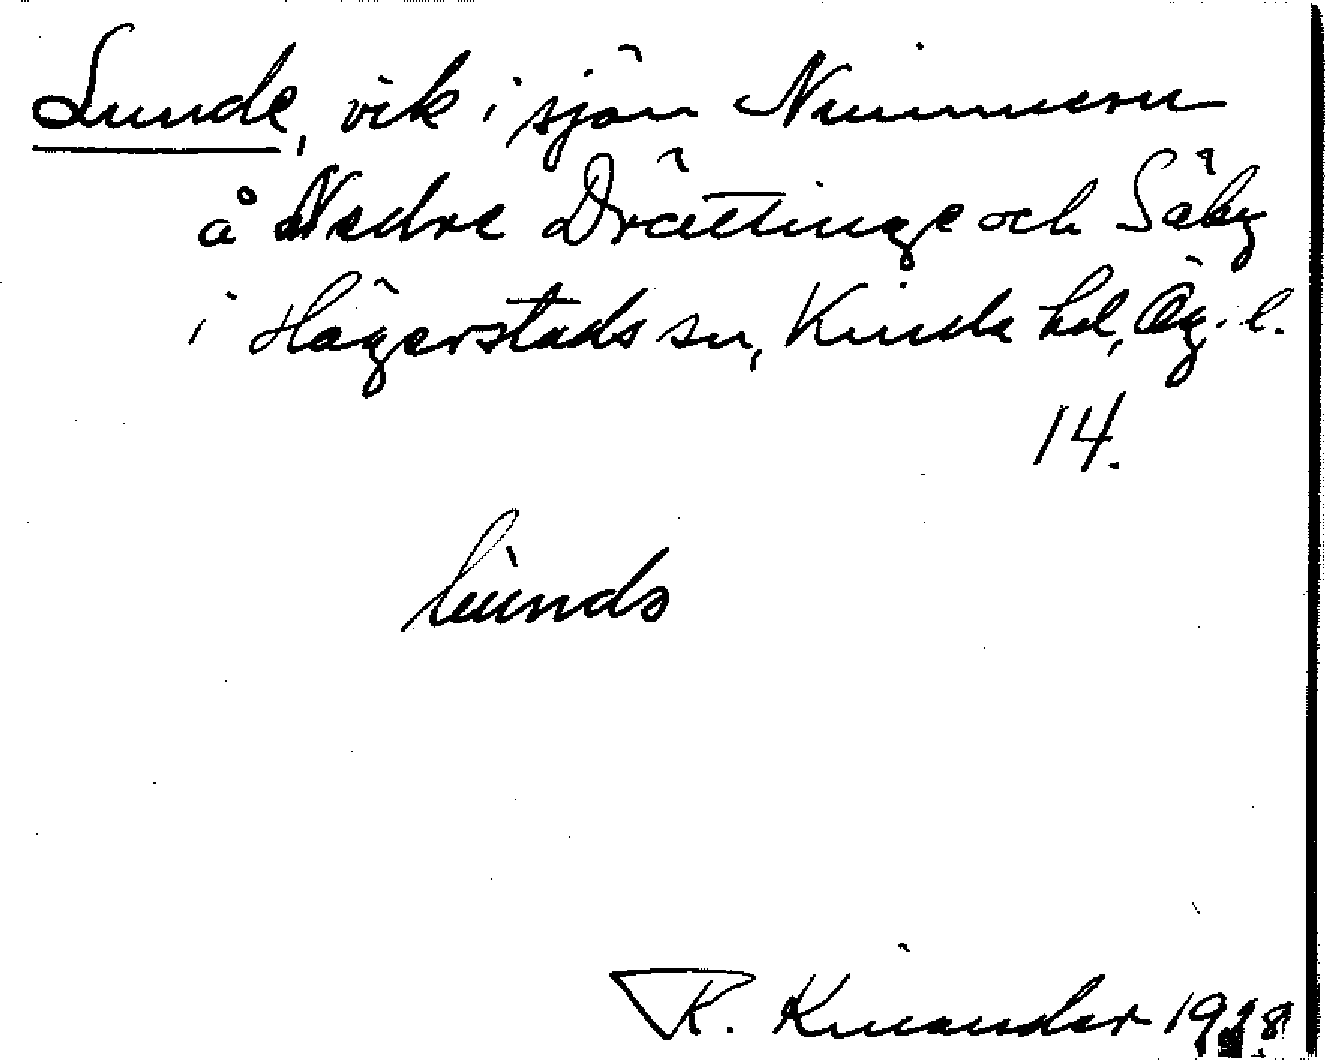 Lunde, vik i sjön Nimmern
å Nedre Drättinge och Säby
i Hägerstads sn, Kinda hd, Ög. l.
14.
R. Kinander